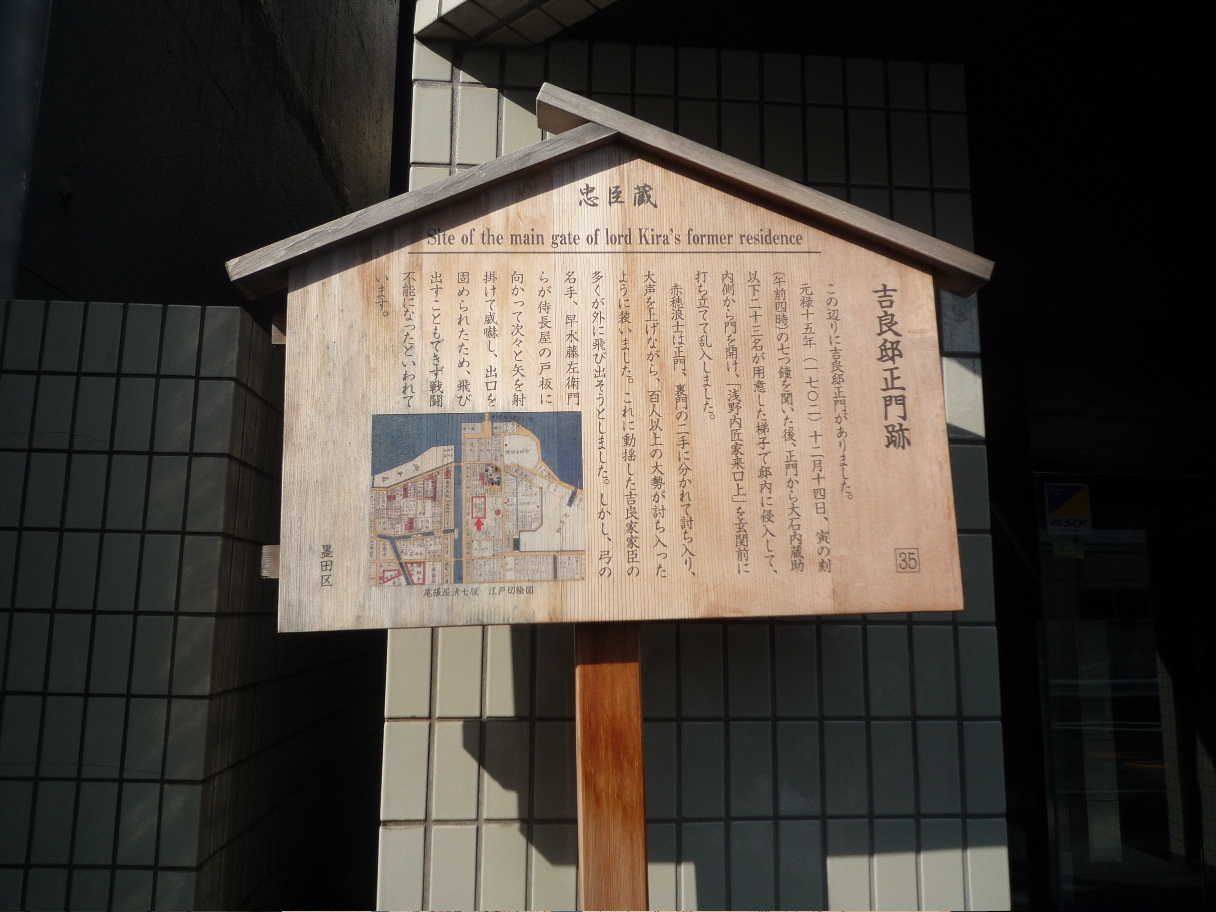 忠臣蔵
Site of the main gate of lord Kira's former residence
吉良邸正門跡
35
この辺りに吉良邸正門がありました。
元禄十五年（一七〇二）十二月十四日、寅の刻
（午前四時）の七つ鐘を聞いた後、正門から大石内蔵助
以下二十三名が用意した梯子で邸内に侵入して、
内側から門を開け、「浅野内匠家来口上」を玄関前に
打ち立てて乱入しました。
赤穂浪士は正門、裏門の二手に分かれて討ち入り、
大声を上げながら、百人以上の大勢が討ち入った
ように装いました。これに動揺した吉良家家臣の
多くが外に飛び出そうとしました。しかし、弓の
名手、早水藤左衛門
らが侍長屋の戸板に
向かって次々と矢を射
掛けて威嚇し、出口を
固められたため、飛び
出すこともできず戦闘
不能になったといわれて
います。
尾張屋清七版　江戸切絵図
墨田区
ALSOK